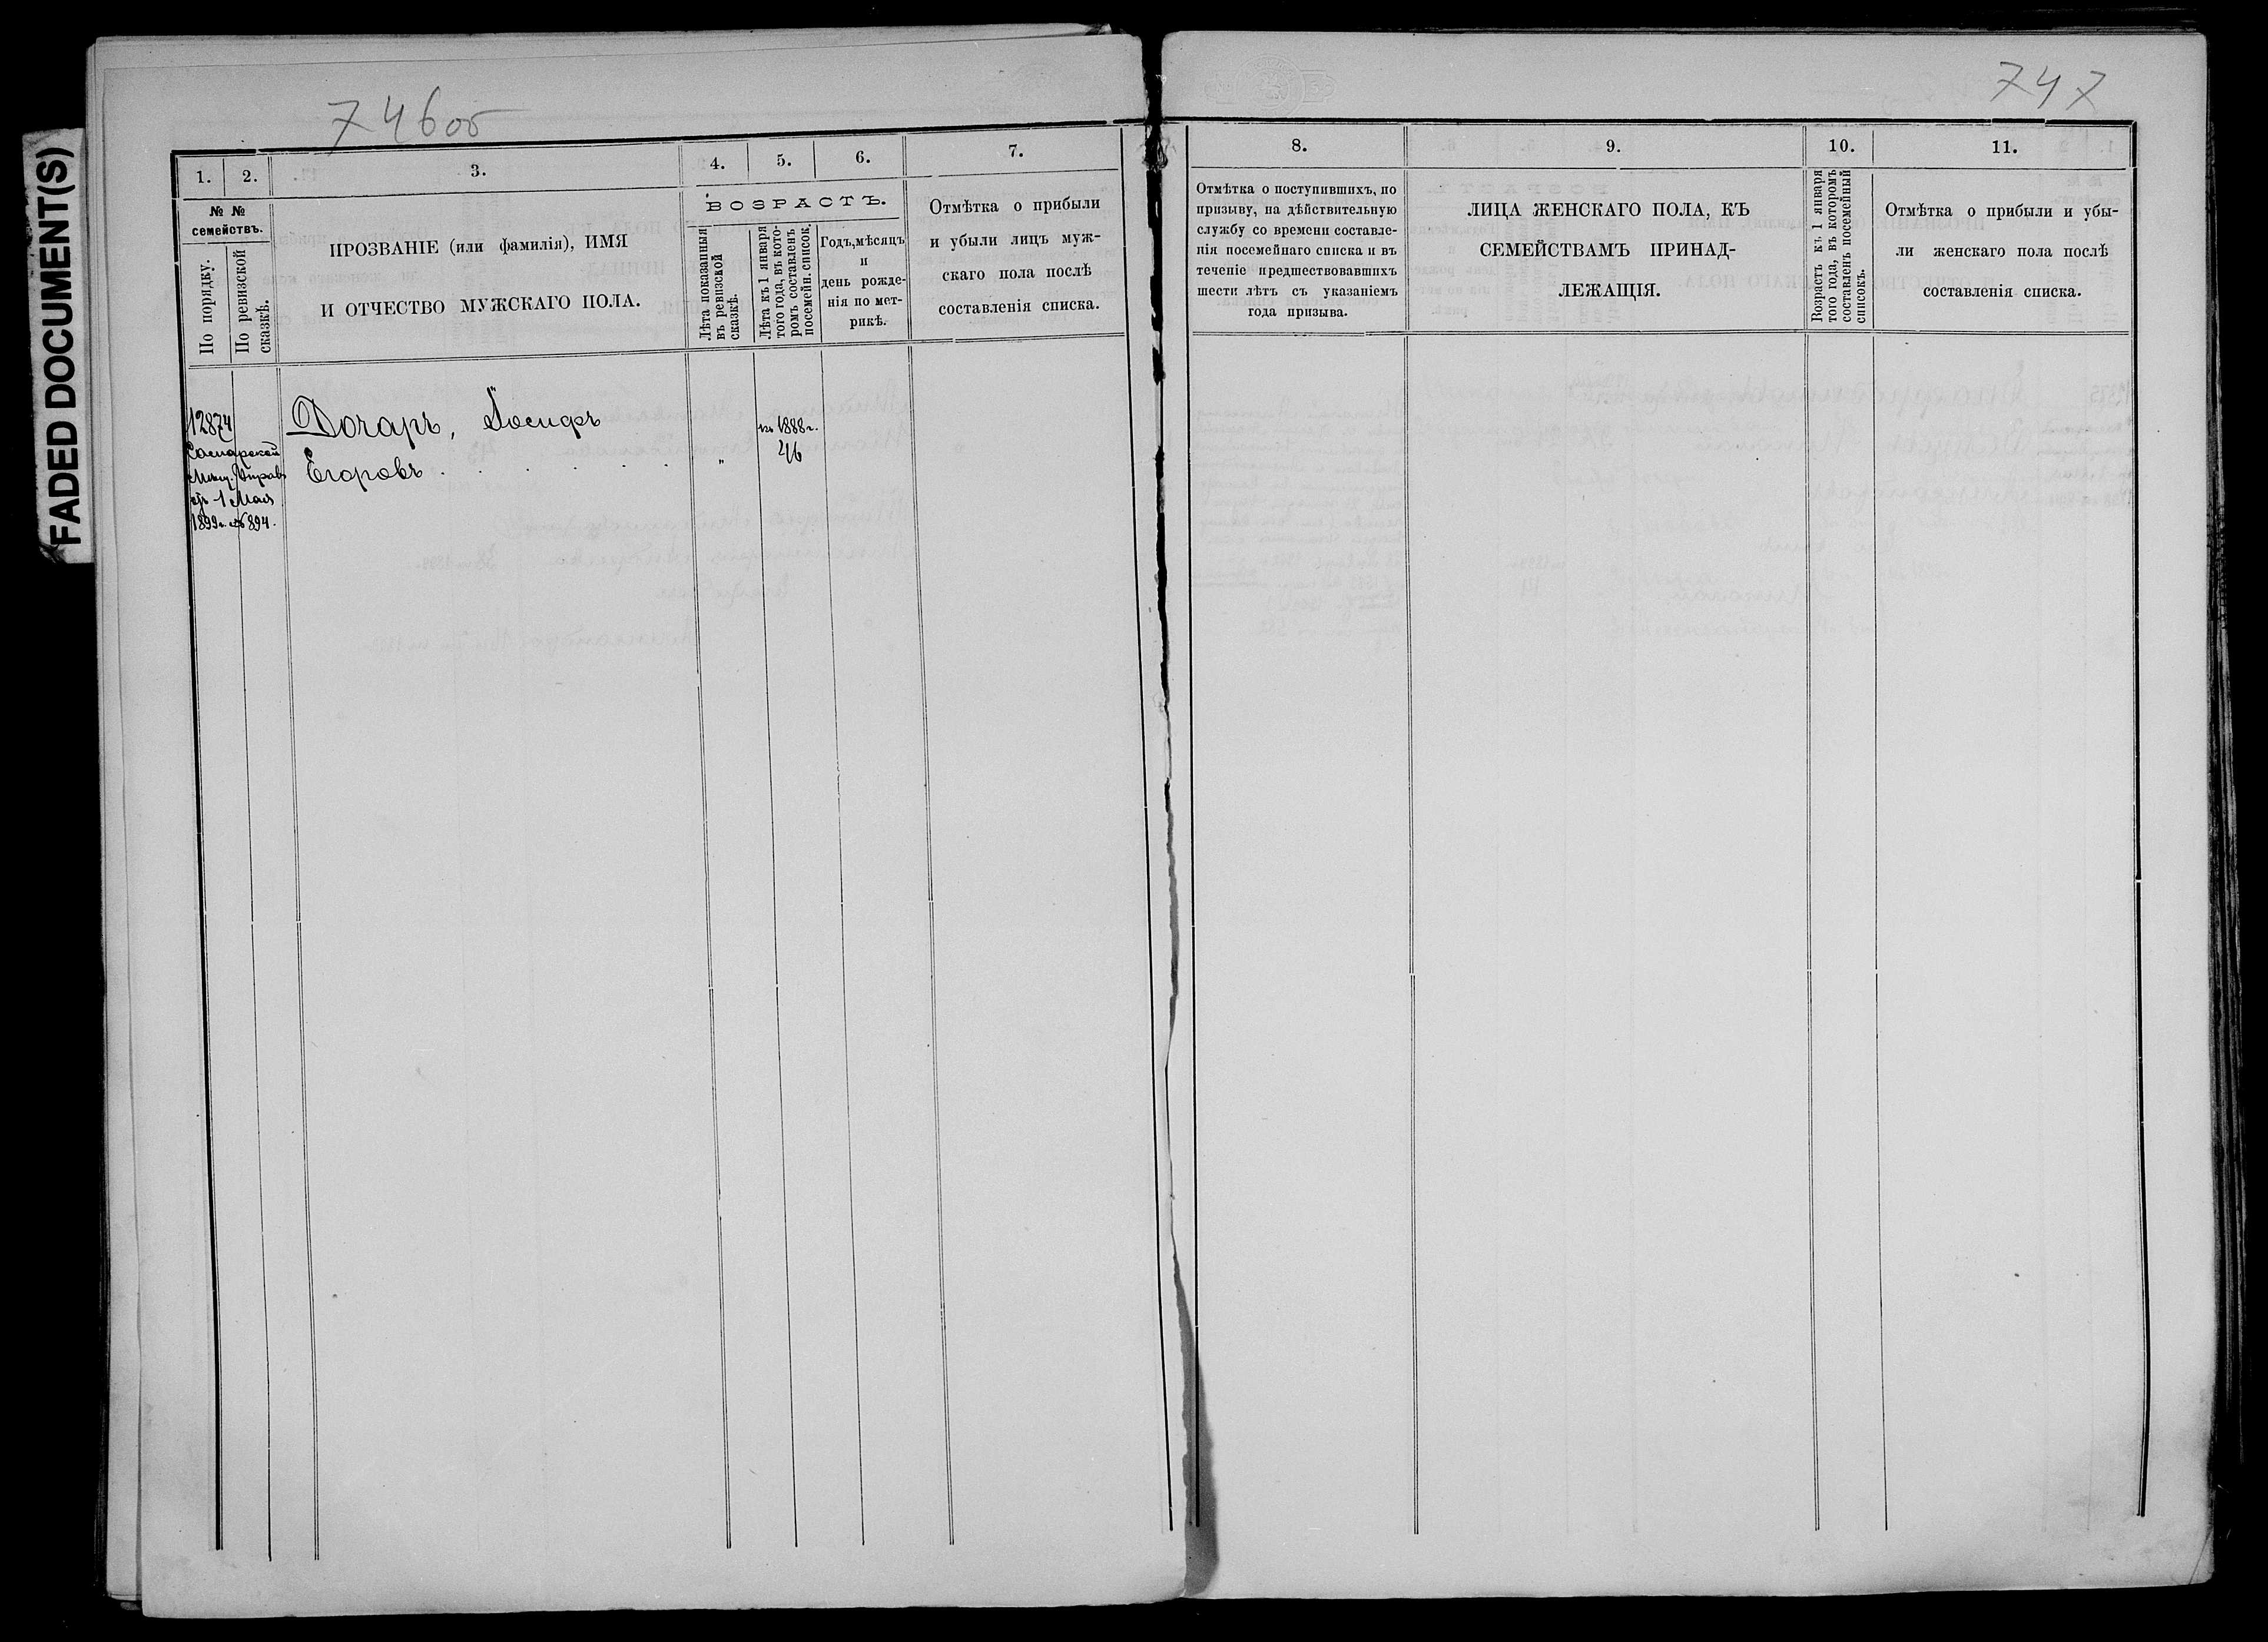 FADED DOCUMENT(S)
746об
747
1. 2. 3. 4. 5. 6. 7.
№ №
семействъ.
По порядку.
По ревизской
сказкѣ.
ПРОЗВАНІЕ (или фамилія), ИМЯ
И ОТЧЕСТВО МУЖСКАГО ПОЛА.
ВОЗРАСТЪ.
Лѣта показанныя
въ ревизской
сказкѣ.
Лѣта къ 1 января
того года, въ кото-
ромъ составленъ
посемейн. список.
Годъ, мѣсяцъ
и
день рожде-
нія по мет-
рикѣ.
Отмѣтка о прибыли
и убыли лицъ муж-
скаго пола послѣ
составленія списка.
12874
Самарской
Мѣщ. Управы
отъ 1 Мая
1899 г. № 894.
Дочаръ, Іосифъ
Егоровъ . . . . . . "
въ 1888 г.
46
8. 9. 10. 11.
Отмѣтка о поступившихъ, по
призыву, на дѣйствительную
службу со времени составле-
нія посемейнаго списка и въ
теченіе предшествовавшихъ
шести лѣтъ съ указаніемъ
года призыва.
ЛИЦА ЖЕНСКАГО ПОЛА, КЪ
СЕМЕЙСТВАМЪ ПРИНАД-
ЛЕЖАЩІЯ.
Возрастъ къ 1 января
того года, въ которомъ
составленъ посемейный
списокъ.
Отмѣтка о прибыли и убы-
ли женскаго пола послѣ
составленія списка.